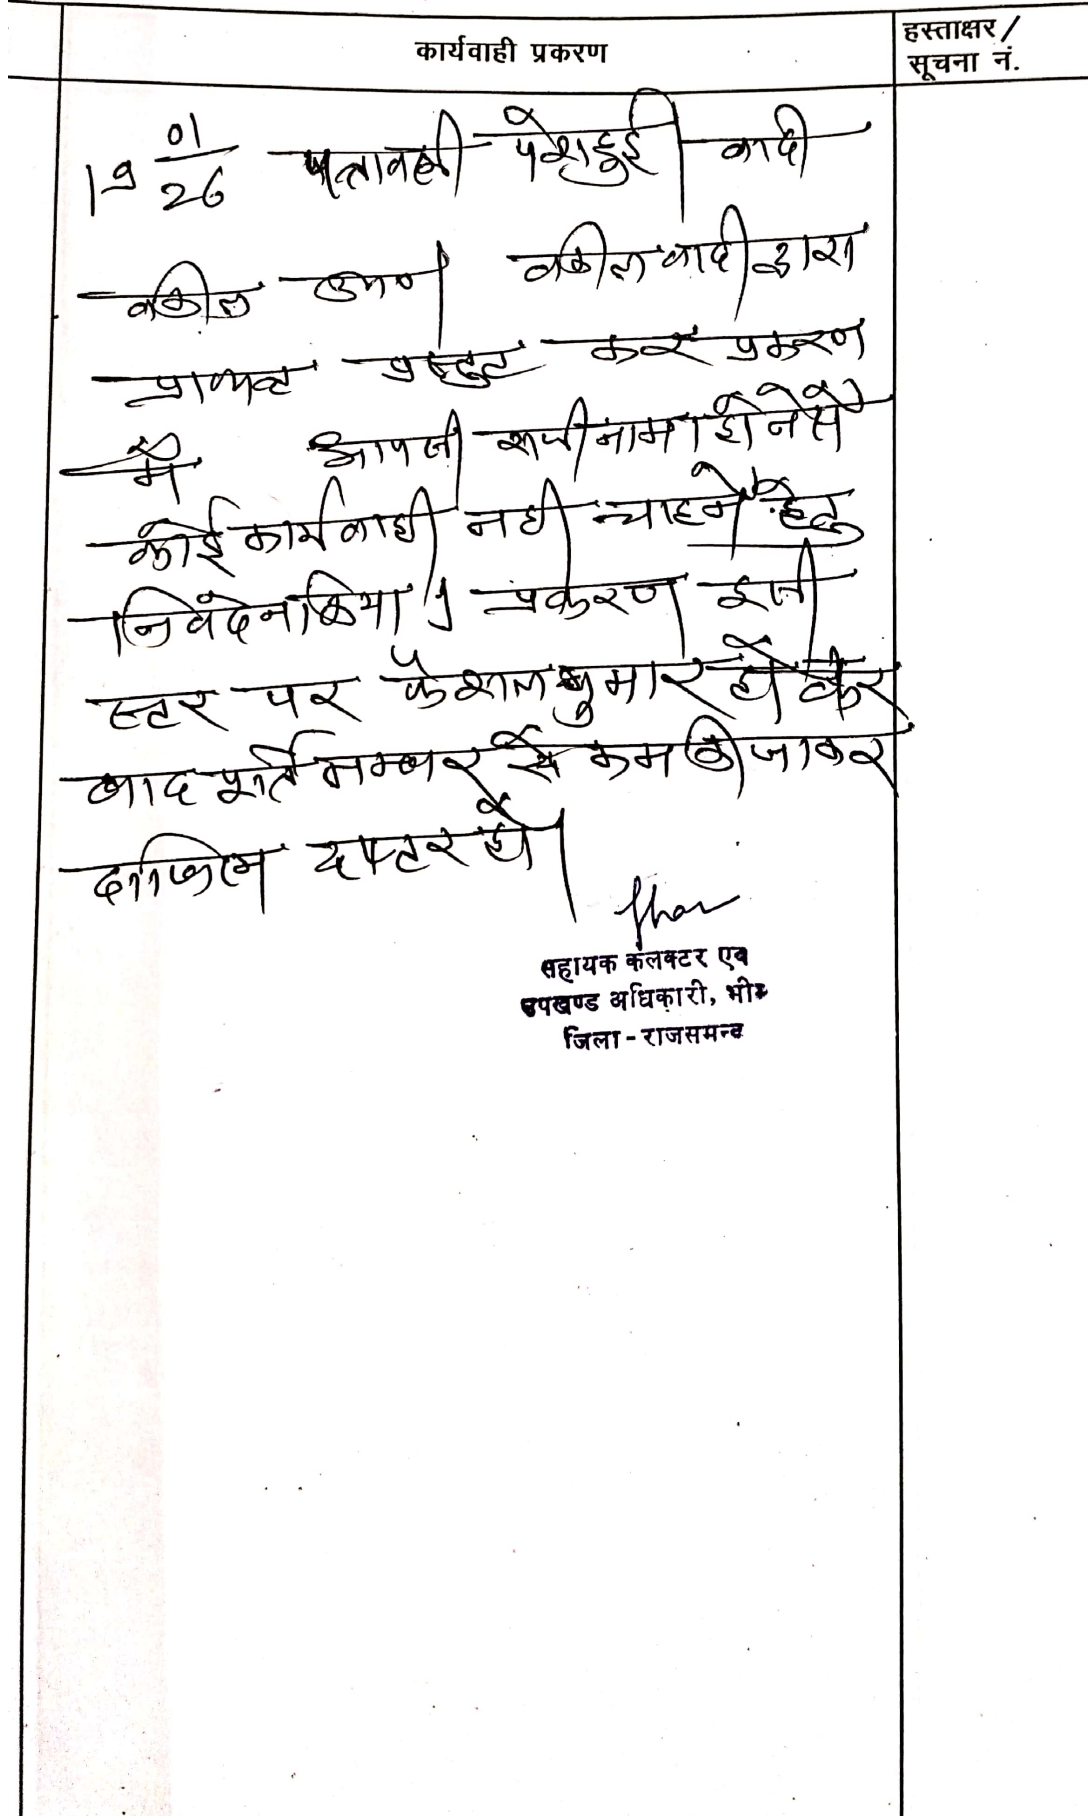 कार्यवाही प्रकरण
हस्ताक्षर /
सूचना नं.
19 01/26 पत्रावली पेश हुई। वादी
वकील उप०। वकील वादी द्वारा
प्रा०पत्र प्रस्तुत कर प्रकरण
में आपसी राजीनामा होने से
कोई कार्यवाही नही चाहने हेतु
निवेदन किया। प्रकरण इसी
स्टर पर फैशल शुमार हो कर
बाद पूर्ति नम्बर से कम की जाकर
दाखिल दफ्टर हो।
सहायक कलक्टर एवं
उपखण्ड अधिकारी, भीम
जिला - राजसमन्द